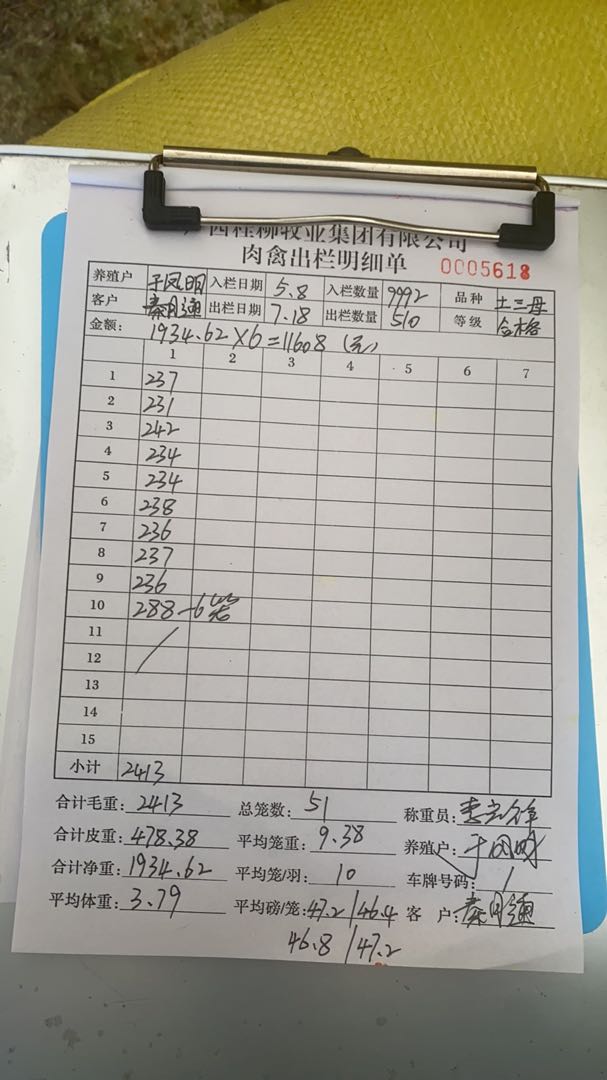 西桂柳牧业集团有限公司
肉禽出栏明细单 0005618
养殖户 于凤明 入栏日期 5.8 入栏数量 9992 品种 土二母
客户 秦月通 出栏日期 7.18 出栏数量 510 等级 合格
金额: 1934.62×6=11608 (元)
1 2 3 4 5 6 7
1 237
2 231
3 242
4 234
5 234
6 238
7 236
8 237
9 236
10 288-6笼
11
12
13
14
15
小计 2413
合计毛重: 2413 总笼数: 51 称重员:
合计皮重: 478.38 平均笼重: 9.38 养殖户:
合计净重: 1934.62 平均笼/羽: 10 车牌号码: /
平均体重: 3.79 平均磅/笼: 47.2/46.4 客 户: 秦月通
46.8/47.2